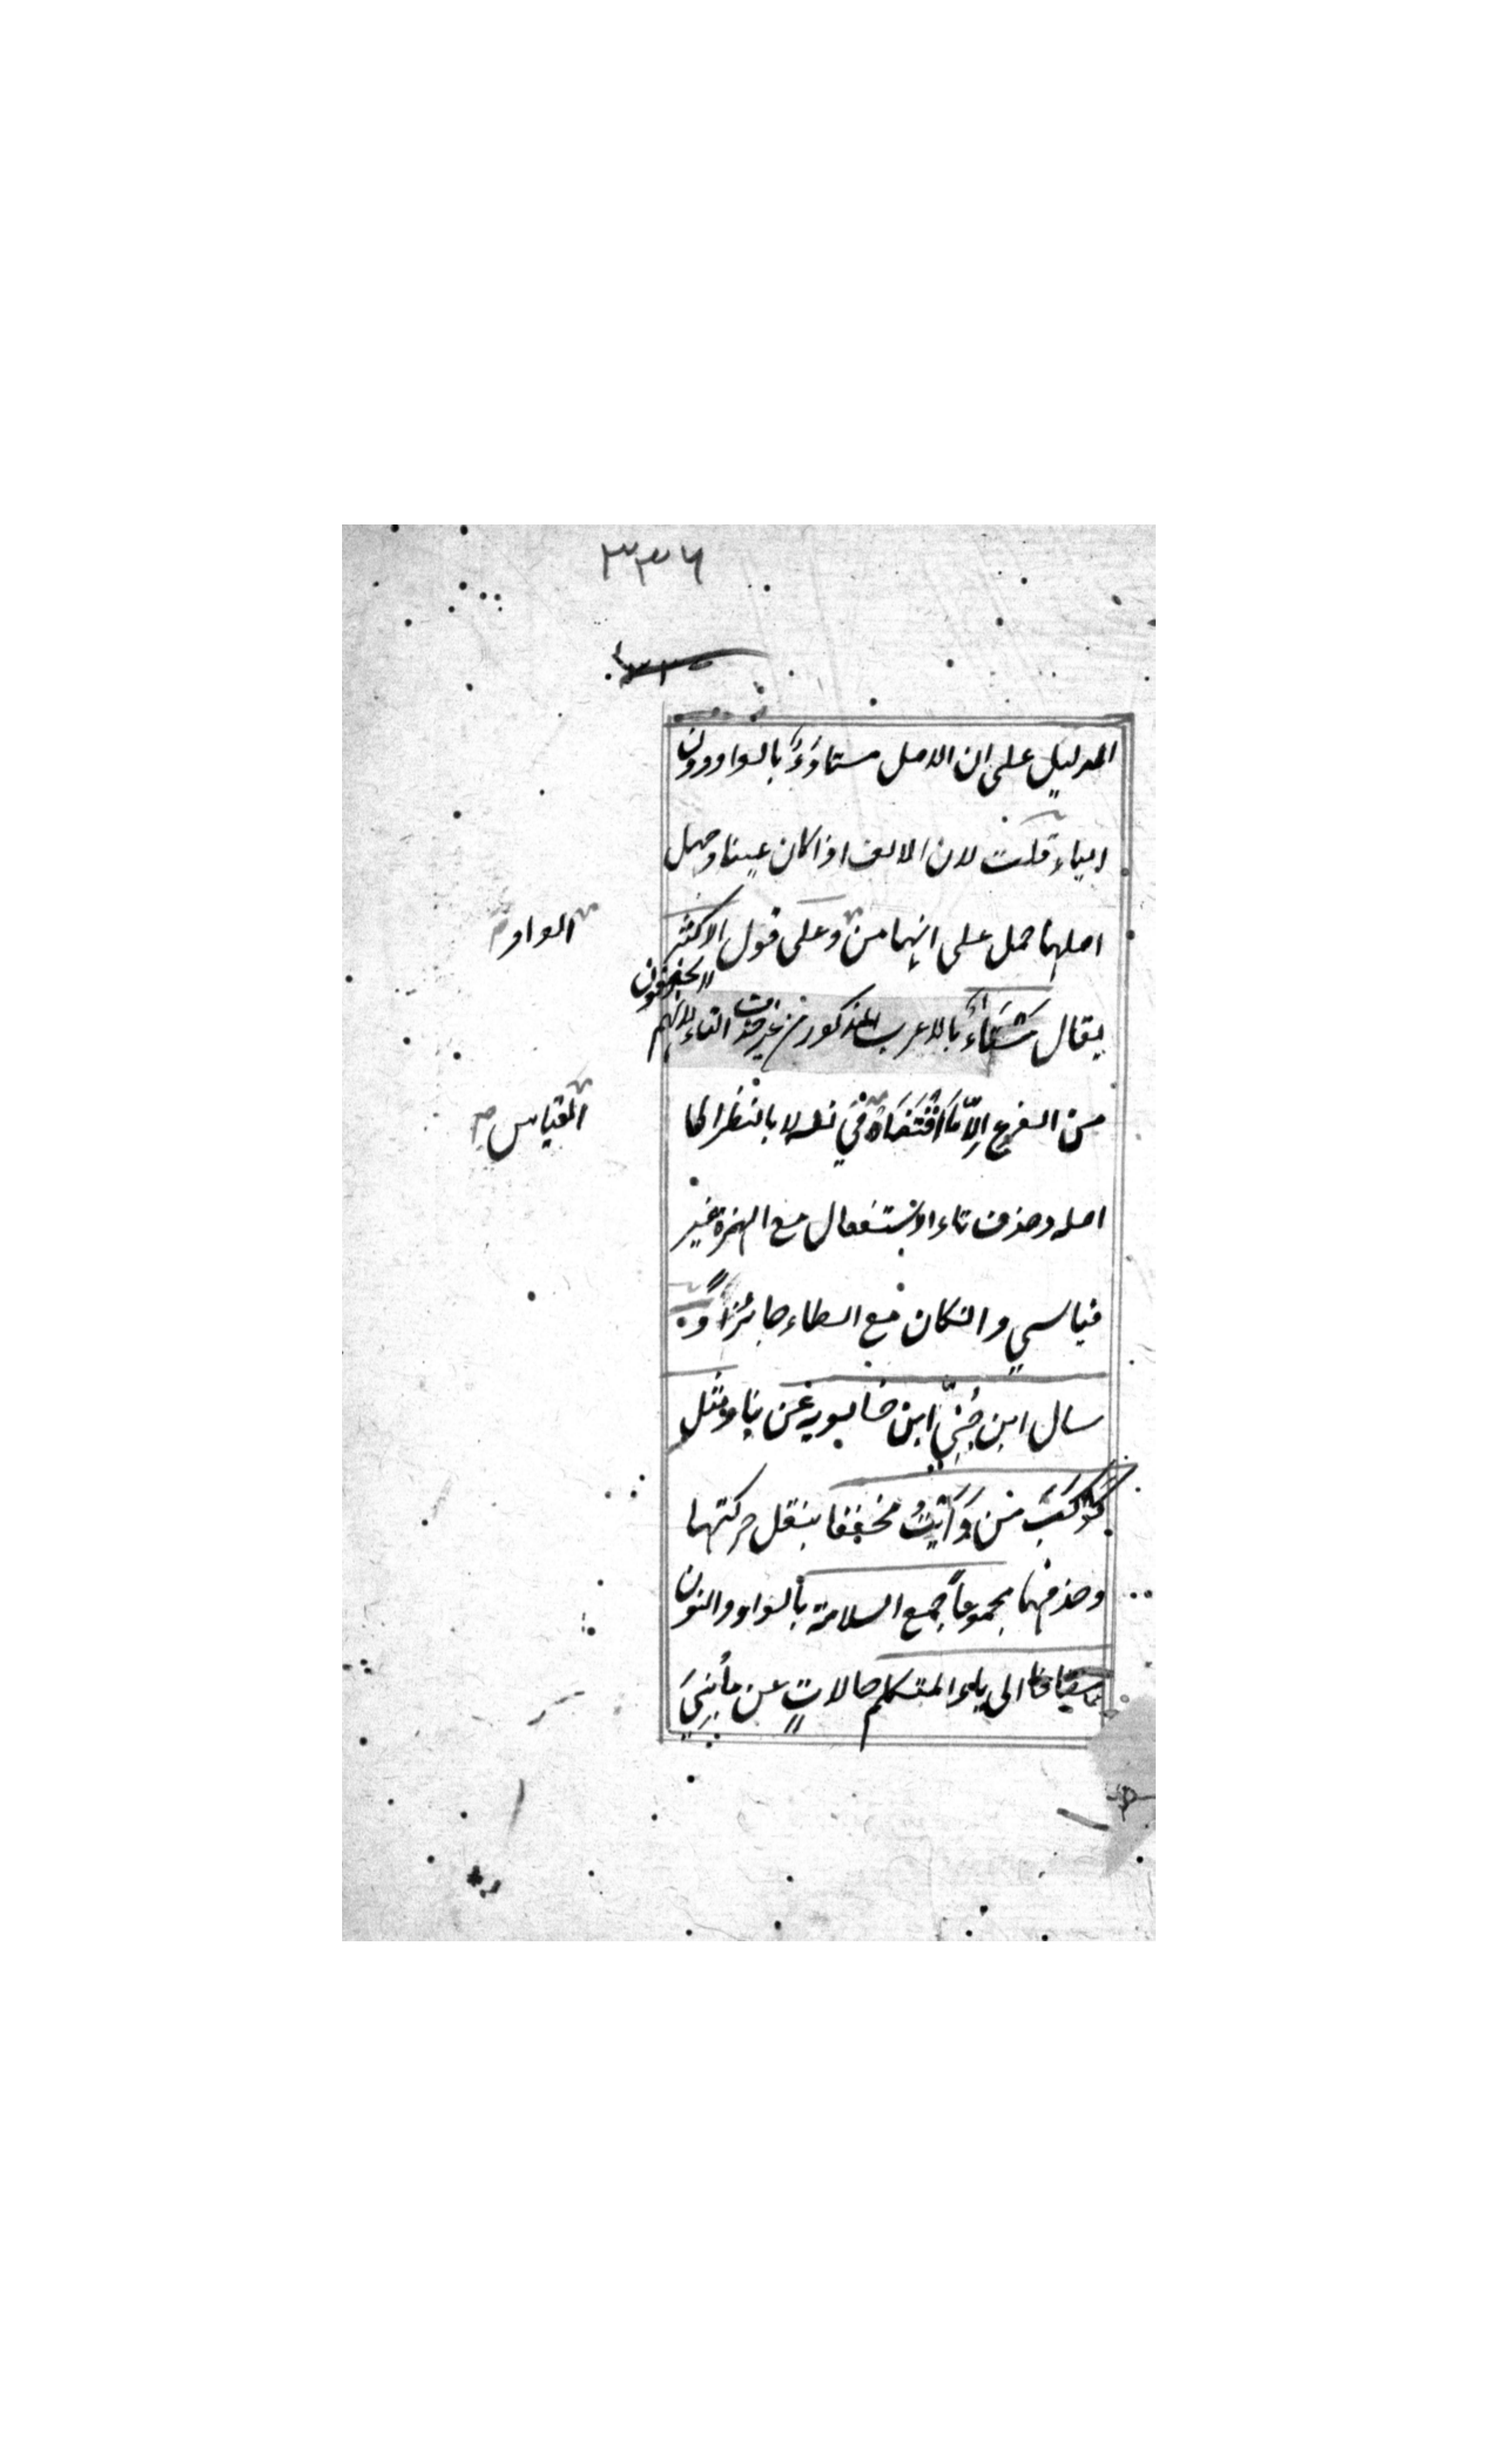 ٣٣٦
الدليل على ان الاصل مستاوَءٌ بالواو دون
الياء قلت لان الالف اذا كان عينا وجهل
اصلها حمل على انها من وعلى قول الاكثر
الواو
يقال مُسْتَاءٌ بالاعراب المذكور من غير حذف التاء لانهم
لا يحذفون
من الفرع اِلّا مَا اقْتَضَاهُ في نفسه لا بالنظر الى
القياس
اصله وحذف تاء الاستفعال مع الهمزة غير
قياسي وان كان مع الطاء جائزاً و
سال ابن جِنِّي ابن خالويه عن بناء مثل
كَوْكَبَ من وَأَيْتُ مخففا بنقل حركتها
وحذفها مجموعاً جمع السلامة بالواو والنون
مضافا الى ياء المتكلم